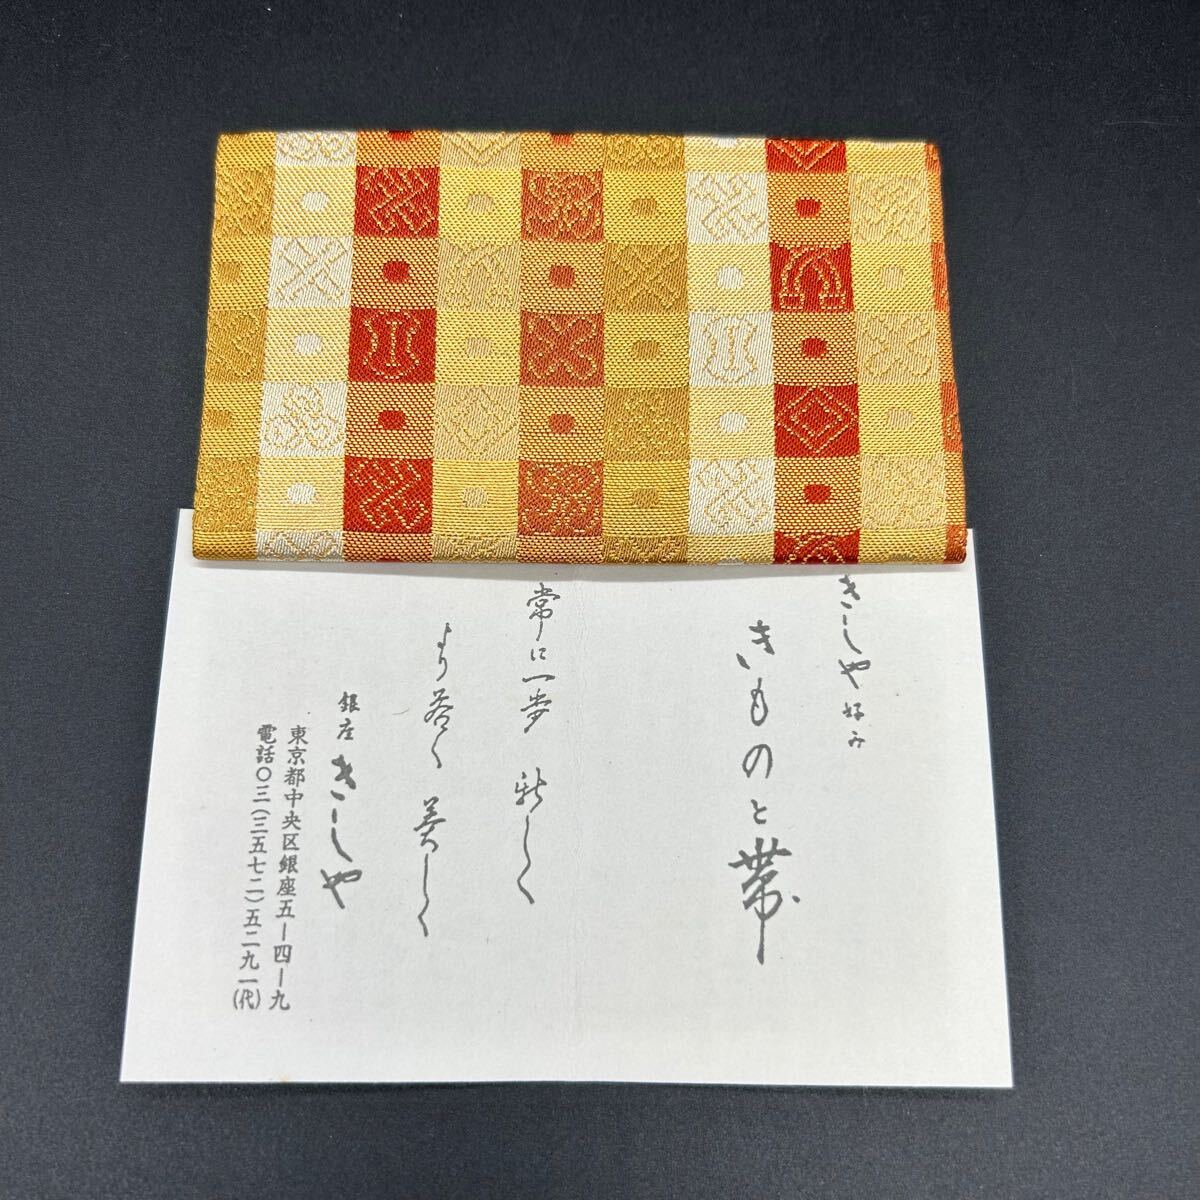 きしや好み
きものと帯
常に一歩 新しく
より若く 美しく
銀座 きしや
東京都中央区銀座五ー四ー九
電話〇三(三五七二)五二九一(代)